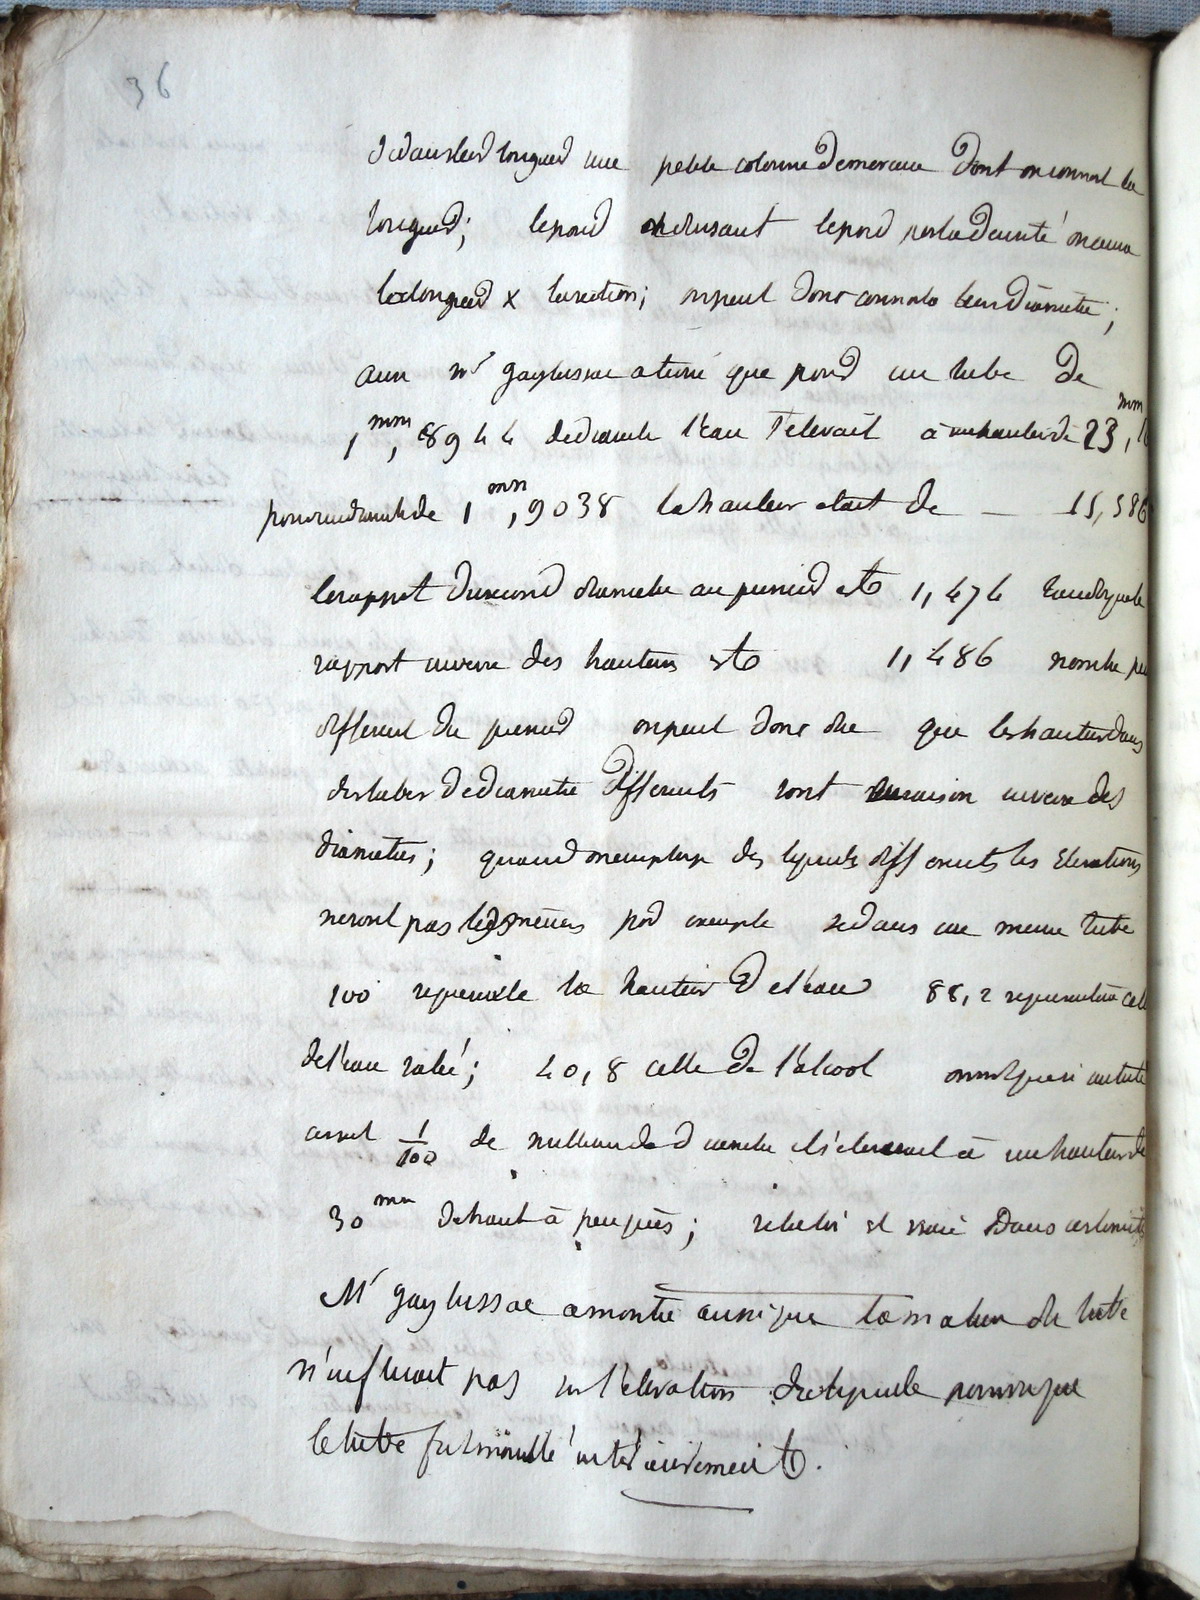 36
une petite colonne de mercure dont on connoit la
longueur; le poid divisant le poid par la densité on aura
la longueur x la section; on peut donc connoitre leur diametre;
ainsi mr gaylussac a trouvé que pour un tube de
1mm,8944 de diametre l'eau s'elevait à une hauteur de 23mm,16
pour un diametre de 1mm,9038 la hauteur etait de — 15,586
le rapport du second diametre au premier est 1,474 tandis que le
rapport inverse des hauteurs est 1,486 nombre peu
different du premier on peut donc dire que les hauteurs dans
des tubes de diametre differents sont en raison inverse des
diametres; quand on employe des liquides differents les elevations
ne sont pas les mêmes par exemple si dans un meme tube
100 represente la hauteur de l'eau 88,2 representera celle
de l'eau salée; 40,8 celle de l'alcool on voit que si un tube
avait 1/100 de millimetre de diametre il s'eleverait à une hauteur de
30mm de haut à peu près; si la loi est vraie dans ces limites
Mr gaylussac a montré aussi que la matiere du tube
n'influait pas sur l'elevation du liquide pourvu que
le tube fut mouillé interieurement.